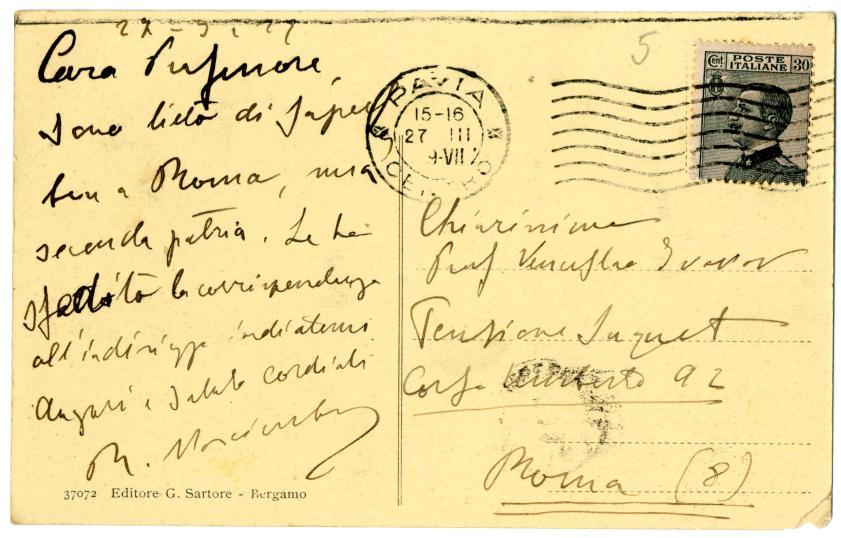 27-3-29
5
Cent POSTE ITALIANE 30
PAVIA
15-16
27 III
9-VII
CENTRO
Caro Professore
sono lieto di saper
ben a Roma, mia
seconda patria. Le ho
spedito la corrispondenza
all'indirizzo indicatomi
Auguri e saluti cordiali
Chiarissimo
Prof Venceslao Ivanov
Pensione Suquet
Corso Umberto 92
Roma (8)
37072 Editore G. Sartore - Bergamo